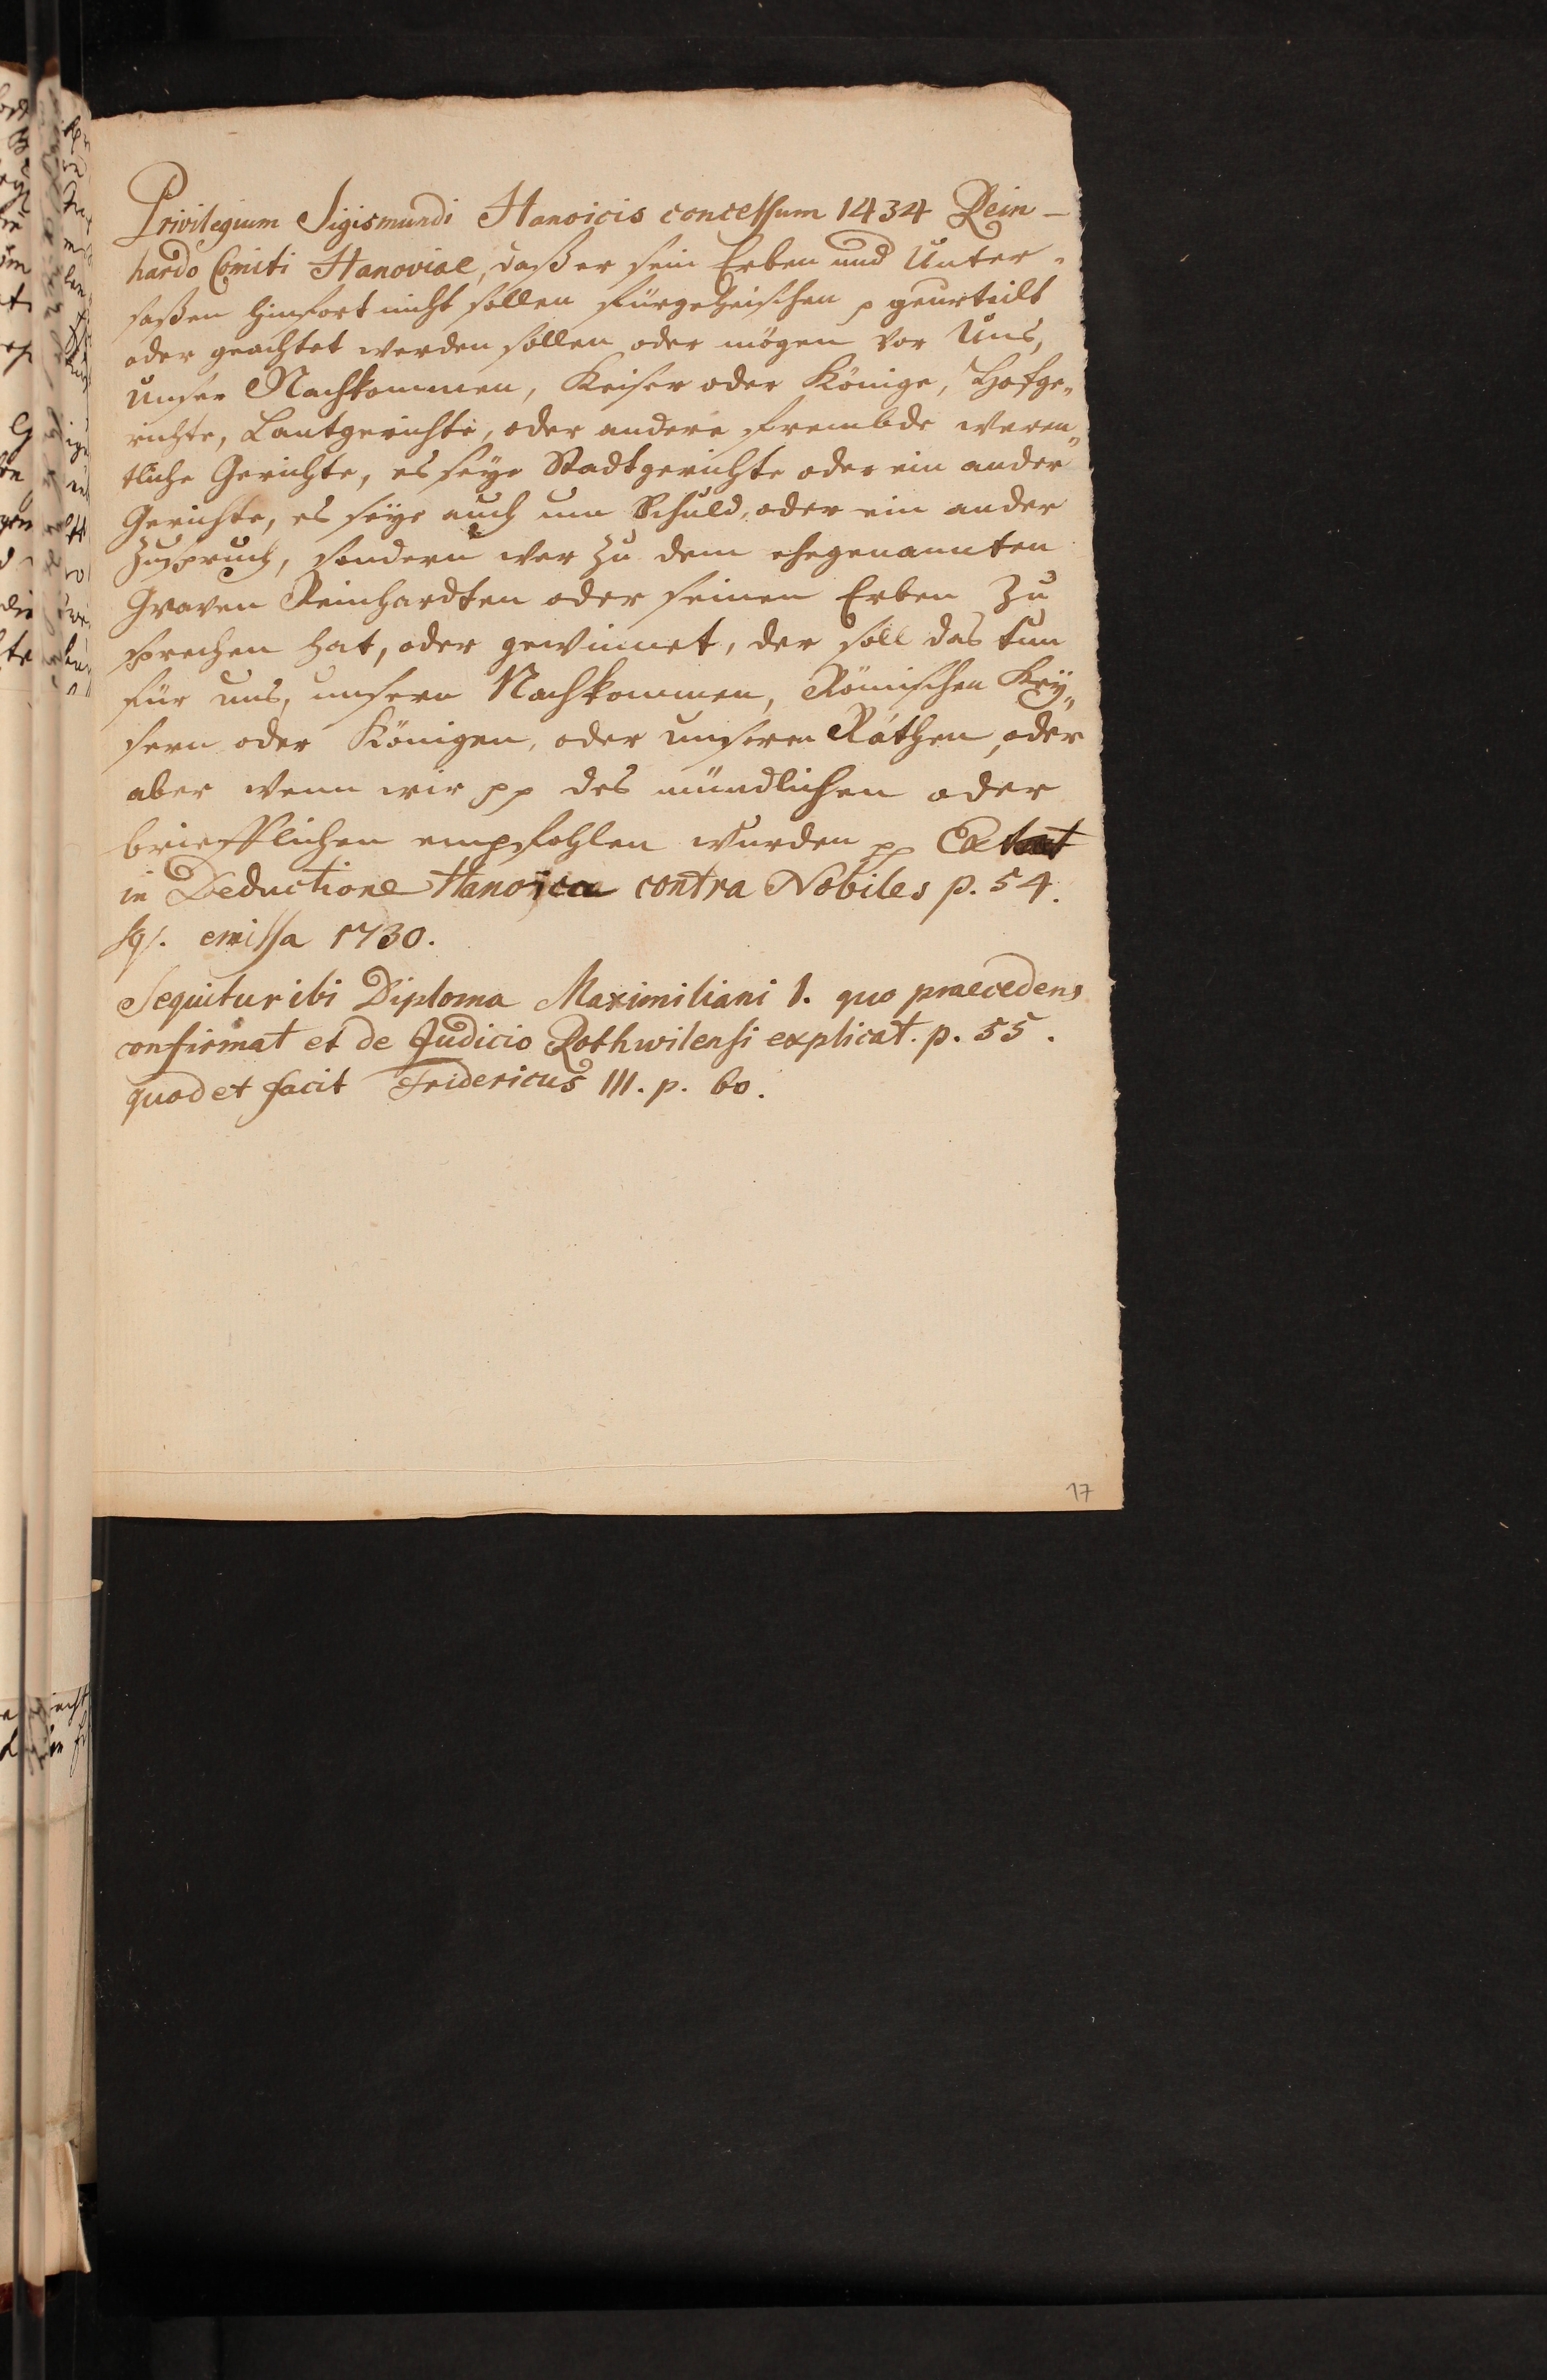 Privilegium Sigismundi Hanoicis concessum 1434 Rein-
hardo Comiti Hanoviae, daß er sein Erben und Unter-
saßen hinfort nicht sollen fürgeheischen p geurteilt
oder geachtet werden sollen oder mögen vor Uns,
Unser Nachkommen, Keiser oder Könige, Hofge„
richte, Lantgerichte, oder andere frembde weren„
tliche Gerichte, es seye Stadtgerichte oder ein ander
Gerichte, es seye auch um Schuld, oder ein ander
Zuspruch, sondern wer zu dem ehegenannten
Graven Reinhardten oder seinen Erben zu
sprechen hat, oder gewinnet, der soll das tun
für uns, unsern Nachkommen, Römischen Key„
sern oder Königen, oder unseren Räthen, oder
aber wenn wir pp des mündlichen oder
briefflichen empfohlen wurden pp Extat
in Deductione Hanoica contra Nobiles p. 54.
sq. emissa 1730.
Sequitur ibi Diploma Maximiliani I. quo praecedens
confirmat et de Judicio Rothwilensi explicat. p. 55.
quod et facit Fridericus III. p. 60.
17